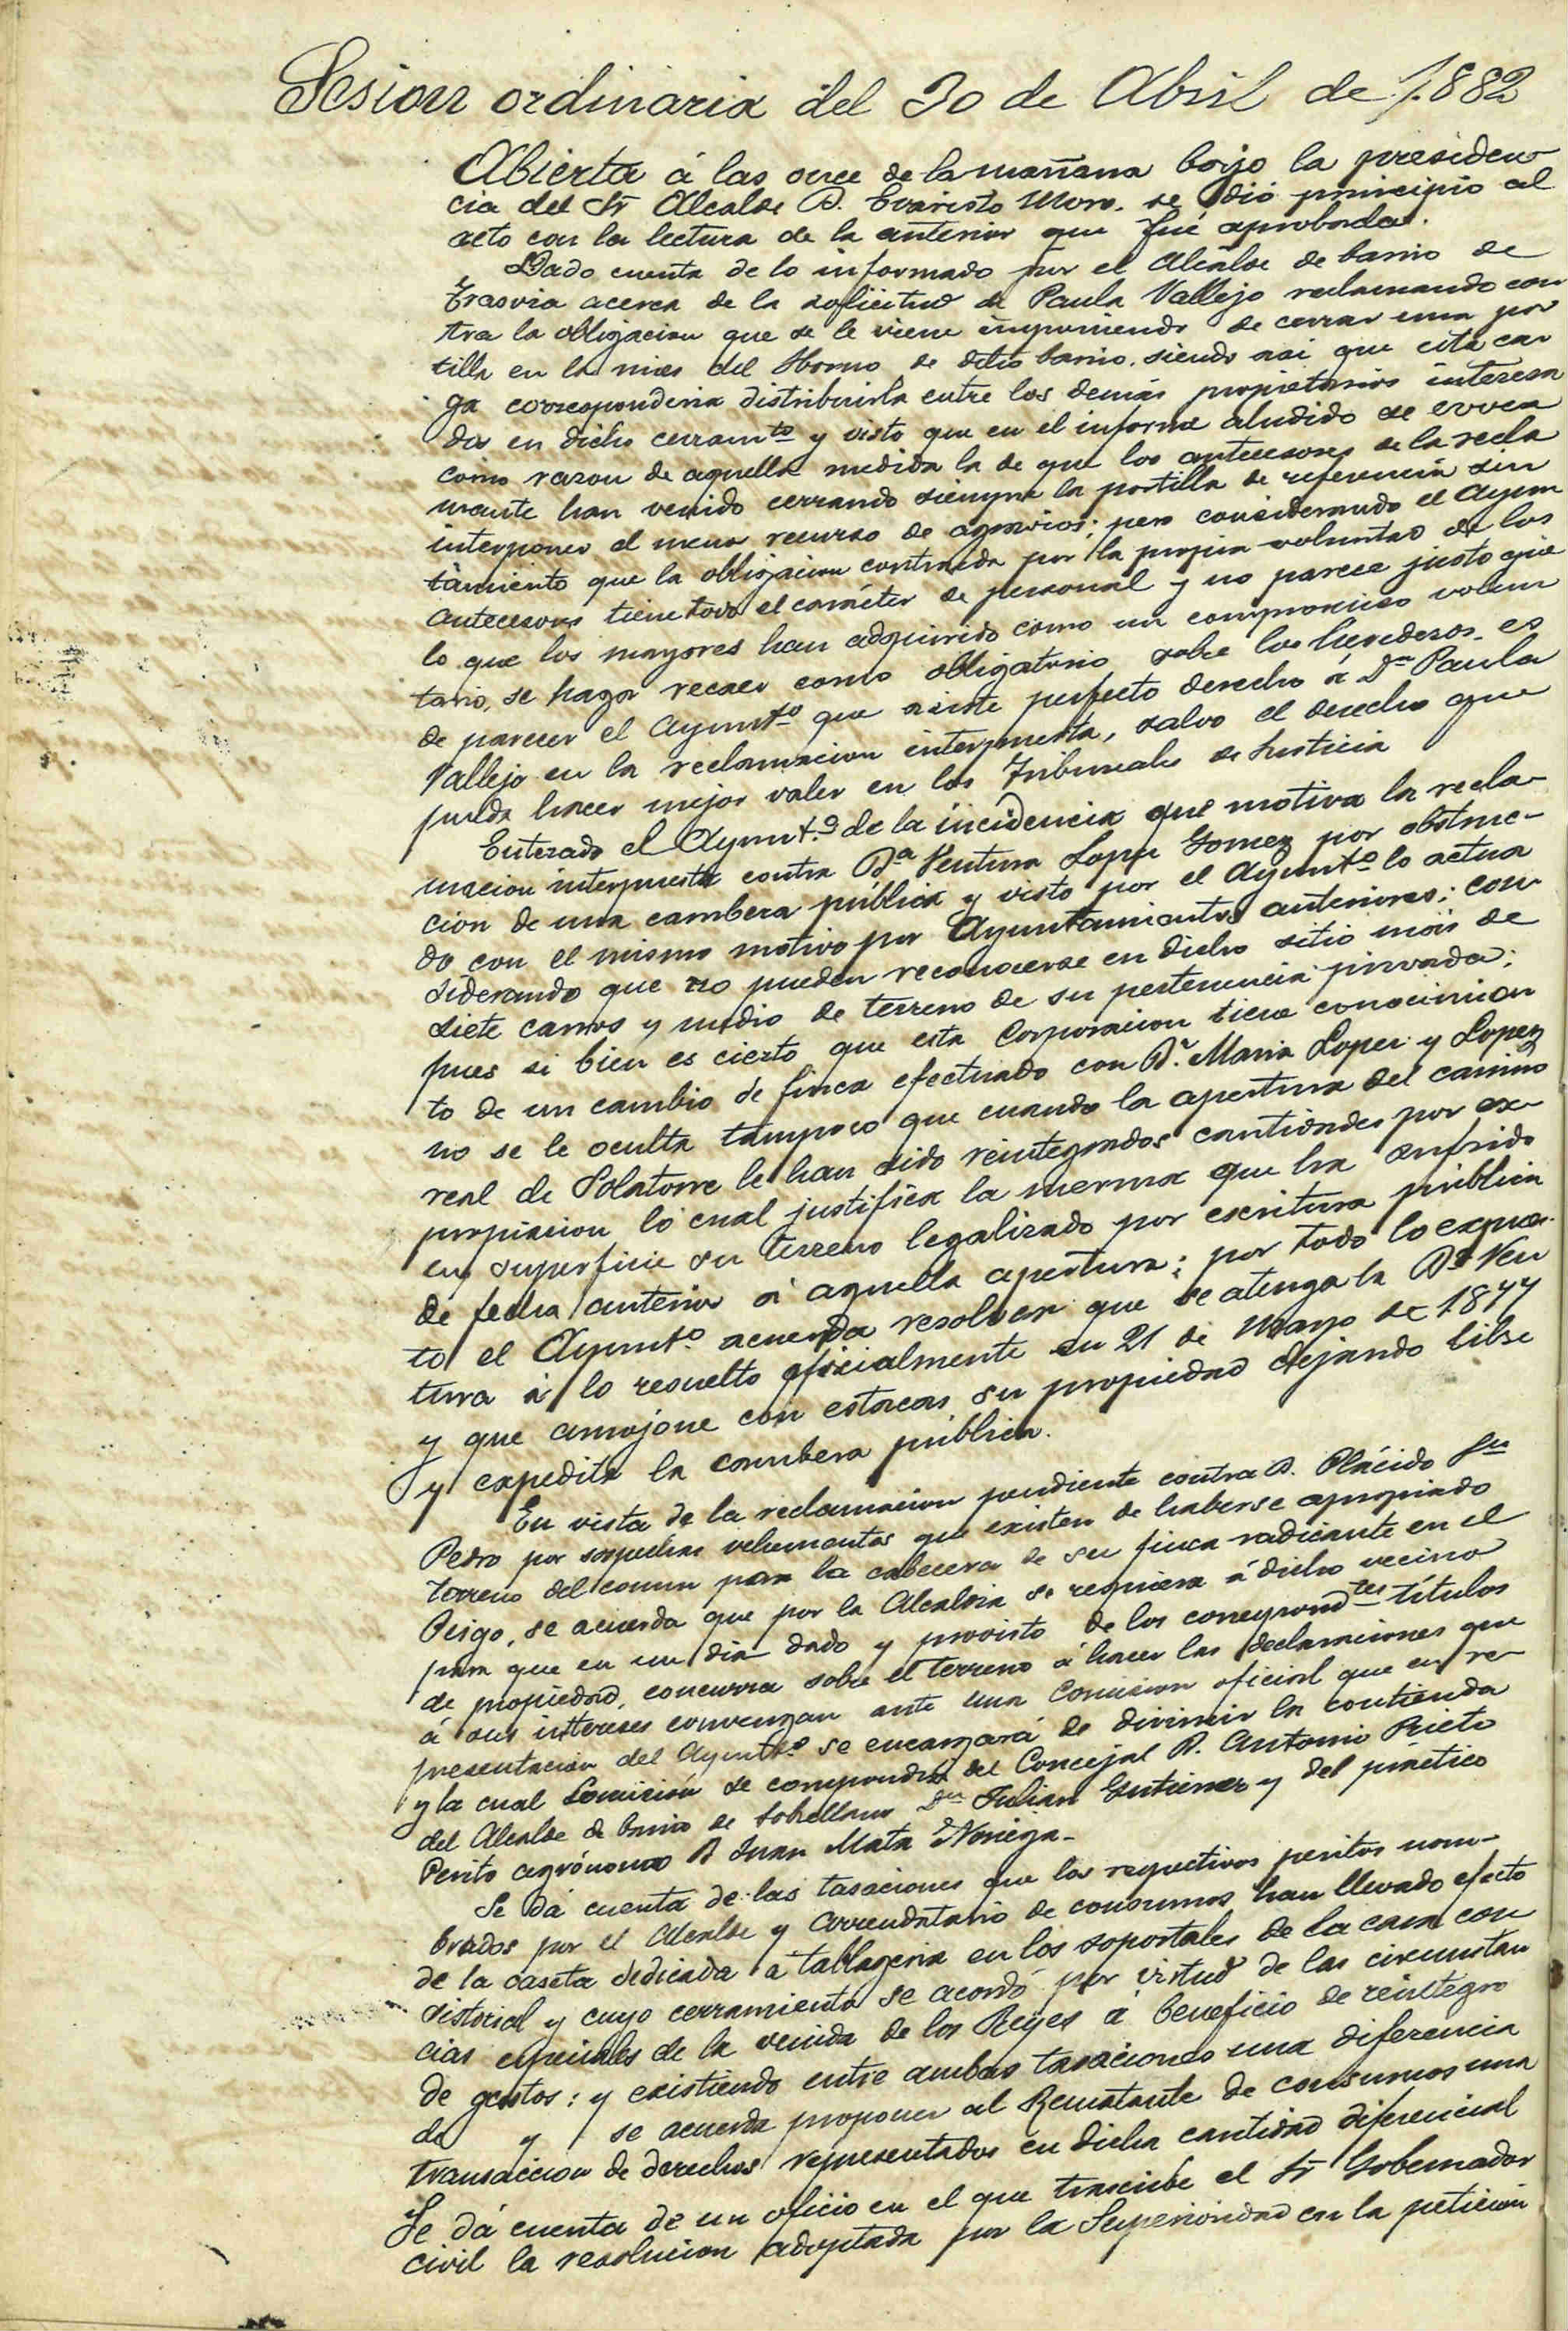 Sesion ordinaria del 30 de Abril de 1.882
Abierta á las once de la mañana bajo la presiden
cia del Sr Alcalde D. Evaristo Moro. se dió principio al
acto con la lectura de la anterior que fué aprobada.
Dado cuenta de lo informado por el Alcalde de barrio de
Trasvia acerca de la solicitud de Paula Vallejo reclamando con
tra la obligacion que se le viene imponiendo de cerrar una por
tilla en la mies del Horno de dicho barrio. siendo asi que esta car
ga corresponderia distribuirla entre los demás propietarios interesa
dos en dicho cerramto y visto que en el informe aludido se evoca
como razon de aquella medida la de que los antecesores de la recla
mante han venido cerrando siempre la portilla de referencia sin
interponer el menor recurso de agravios; pero considerando el Ayun
tamiento que la obligacion contraida por la propia voluntad de los
antecesores tiene todo el carácter de personal y no parece justo que
lo que los mayores han adquirido como un compromiso volun
tario, se haga recaer como obligatorio sobre los herederos. es
de parecer el Ayuntº que asiste perfecto derecho á Dª Paula
Vallejo en la reclamacion interpuesta, salvo el derecho que
pueda hacer mejor valer en los Tribunales de Justicia
Enterado el Ayuntº de la incidencia que motiva la recla-
macion interpuesta contra Dª Ventura Lopez Gomez por obstruc-
cion de una cambera pública y visto por el Ayuntº lo actua
do con el mismo motivo por Ayuntamientos anteriores; con-
siderando que no pueden reconocerse en dicho sitio más de
siete carros y medio de terreno de su pertenencia privada;
pues si bien es cierto que esta Corporacion tiene conocimien
to de un cambio de finca efectuado con Dª. Maria Lopez y Lopez
no se le oculta tampoco que cuando la apertura del camino
real de Solatorre le han sido reintegrados cantidades por ex-
propiacion lo cual justifica la merma que ha sufrido
en superficie su terreno legalizado por escritura pública
de fecha anterior á aquella apertura; por todo lo expues-
to el Ayuntº. acuerda resolver que se atenga la Dª Ven
tura á lo resuelto oficialmente en 21 de Mayo de 1877
y que amojone con estacas su propiedad dejando libre
y expedita la cambera pública.
En vista de la reclamacion pendiente contra D. Plácido Sn
Pedro por sospechas vehementes que existen de haberse apropiado
terreno del comun para la cabecera de su finca radicante en el
Peigo, se acuerda que por la Alcaldia se requiera á dicho vecino
para que en un dia dado y provisto de los correspondtes títulos
de propiedad, concurra sobre el terreno á hacer las declaraciones que
á sus intereses convengan ante una Comision oficial que en re-
presentacion del Ayuntº. se encargará de dirimir la contienda
y la cual Comision se compondrá del Concejal D. Antonio Prieto
del Alcalde de barrio de Sobrellano Dn Julian Gutierrez y del práctico
Perito agrónomo D Juan Mata Noriega-
Se dá cuenta de las tasaciones que los respectivos peritos nom-
brados por el Alcalde y Arrendatario de consumos han llevado efecto
de la caseta dedicada á tablageria en los soportales de la casa con
sistorial y cuyo cerramiento se acordó por virtud de las circunstan
cias especiales de la venida de los Reyes á beneficio de reintegro
de gastos: y existiendo entre ambas tasaciones una diferencia
de y se acuerda proponer al Rematante de consumos una
transaccion de derechos representados en dicha cantidad diferencial
Se dá cuenta de un oficio en el que trascribe el Sr Gobernador
civil la resolucion adoptada por la Superioridad en la peticion